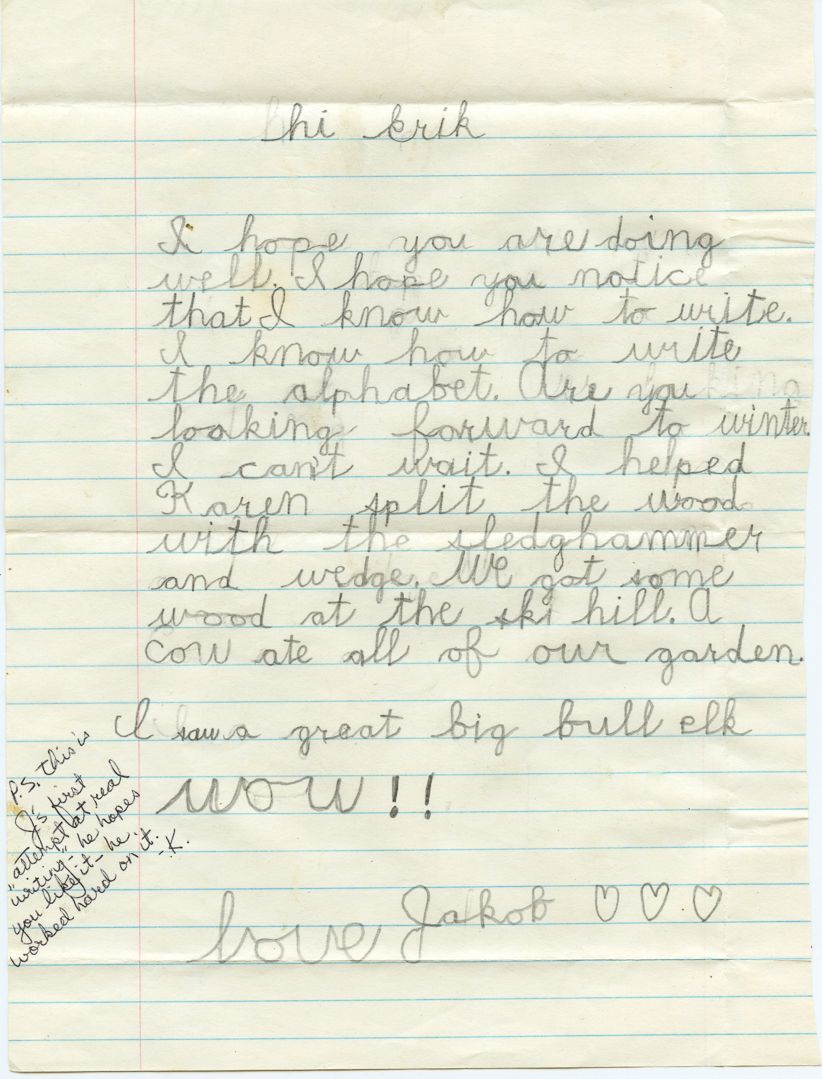 hi Erik
I hope you are doing
well. I hope you notice
that I know how to write.
I know how to write
the alphabet. Are you
looking forward to winter.
I can't wait. I helped
Karen split the wood
with the sledghammer
and wedge. We got some
wood at the ski hill. A
cow ate all of our garden.
I saw a great big bull elk
wow!!
love Jakob ♡ ♡ ♡
P.S. this is
J's first
"attempt at real
writing"- he hopes
you like it - he
worked hard on it.
-K.